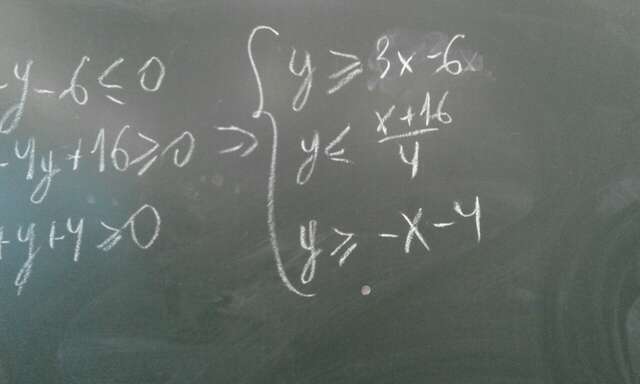 -y-6≤0
-4y+16≥0
+y+4≥0
⇒
y≥3x-6
y≤(x+16)/4
y≥-x-4